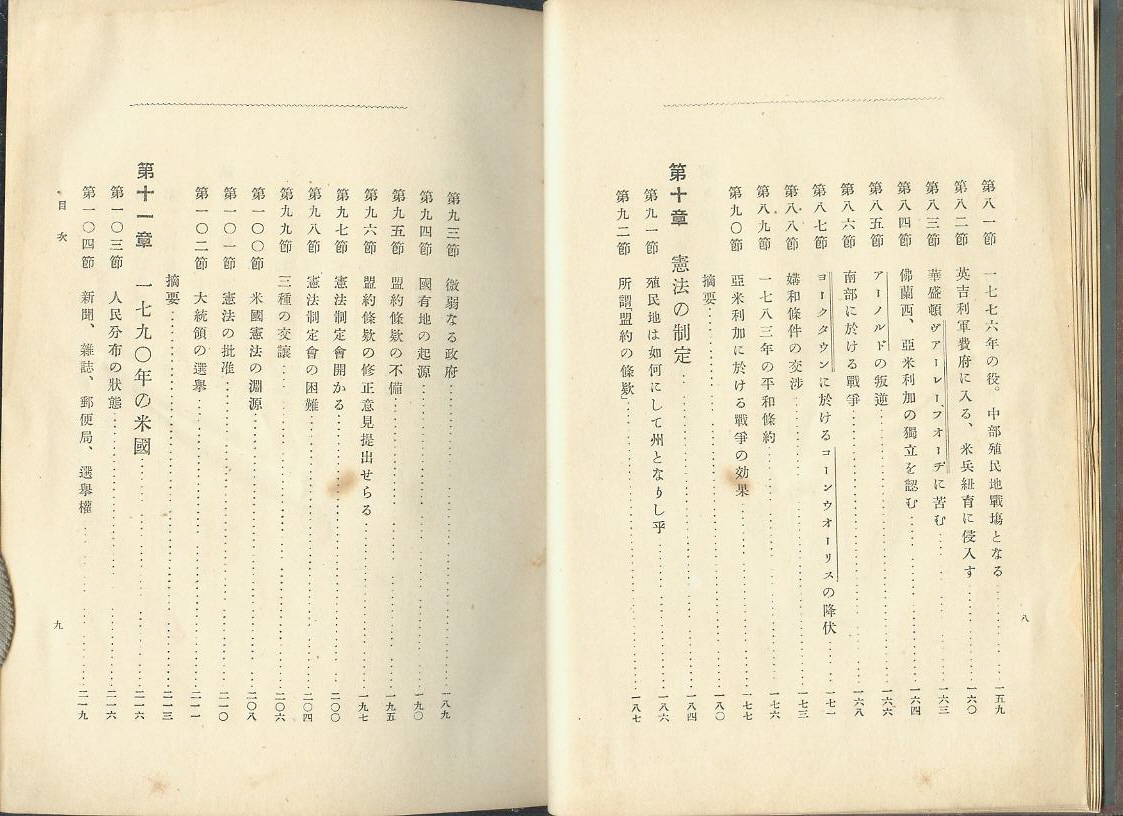 第八一節 一七七六年の役。中部殖民地戰場となる 一五九
第八二節 英吉利軍費府に入る、米兵紐育に侵入す 一六〇
第八三節 華盛頓ヴァーレーフオーヂに苦む 一六三
第八四節 佛蘭西、亞米利加の獨立を認む 一六四
第八五節 アーノルドの叛逆 一六六
第八六節 南部に於ける戰爭 一六八
第八七節 ヨークタウンに於けるコーンウオーリスの降伏 一七一
第八八節 媾和條件の交渉 一七三
第八九節 一七八三年の平和條約 一七六
第九〇節 亞米利加に於ける戰爭の効果 一七七
摘要 一八〇
第十章 憲法の制定 一八四
第九一節 殖民地は如何にして州となりし乎 一八六
第九二節 所謂「盟約の條欵」 一八七
八
第九三節 微弱なる政府 一八九
第九四節 國有地の起源 一九〇
第九五節 盟約條欵の不備 一九五
第九六節 盟約條欵の修正意見提出せらる 一九七
第九七節 憲法制定會開かる 二〇〇
第九八節 憲法制定會の困難 二〇四
第九九節 三種の交讓 二〇六
第一〇〇節 米國憲法の淵源 二〇八
第一〇一節 憲法の批准 二一〇
第一〇二節 大統領の選擧 二一一
摘要 二一三
第十一章 一七九〇年の米國 二一六
第一〇三節 人民分布の狀態 二一六
第一〇四節 新聞、雜誌、郵便局、選擧權 二一九
目次
九